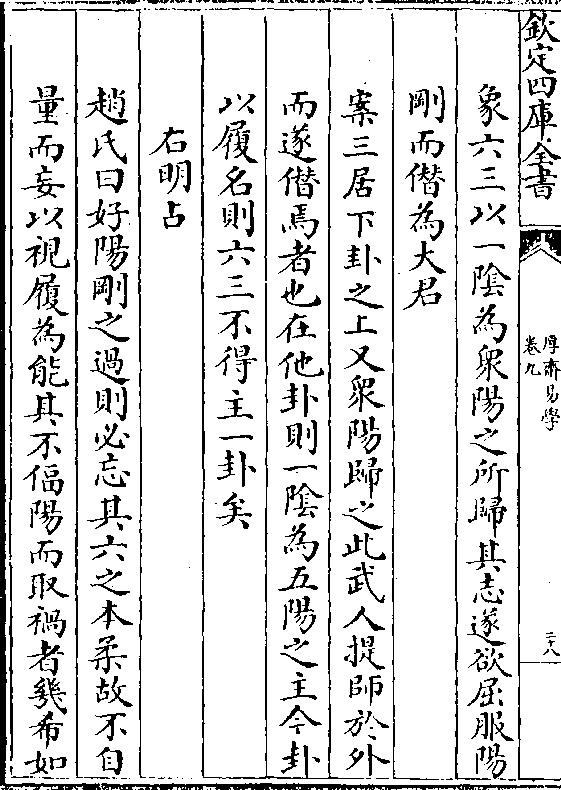 欽定四庫全書
厚齋易學
卷九
二十八
象六三以一陰為衆陽之所歸其志遂欲屈服陽
剛而僭為大君
案三居下卦之上又衆陽歸之此武人提師於外
而遂僭焉者也在他卦則一陰為五陽之主今卦
以履名則六三不得主一卦矣
右明占
趙氏曰好陽剛之過則必忘其六之本柔故不自
量而妄以視履為能其不偪陽而取禍者幾希如